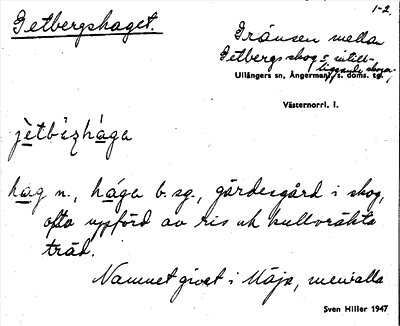 1-2.
Getbergshaget.
Gränsen mellan
Getbergs skog o. intill-
liggande skogar,
Ullångers sn, Ångermanl. s. doms. tg.
Västernorrl. l.
jètbæ̀rzhága
hag n., hága b. sg., gärdesgård i skog,
ofta uppförd av ris och kullvräkta
träd.
Namnet givet i Mäja, men alla
Sven Hiller 1947